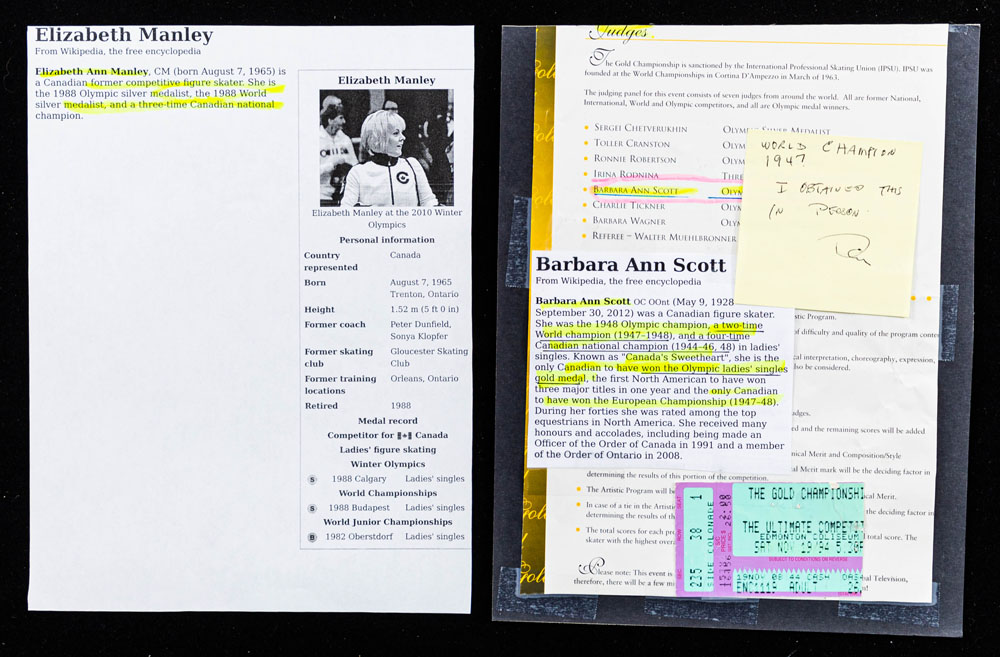 Elizabeth Manley
From Wikipedia, the free encyclopedia
Elizabeth Ann Manley, CM (born August 7, 1965) is
a Canadian former competitive figure skater. She is
the 1988 Olympic silver medalist, the 1988 World
silver medalist, and a three-time Canadian national
champion.
Elizabeth Manley
Elizabeth Manley at the 2010 Winter
Olympics
Personal information
Country represented Canada
Born August 7, 1965
Trenton, Ontario
Height 1.52 m (5 ft 0 in)
Former coach Peter Dunfield,
Sonya Klopfer
Former skating club Gloucester Skating
Club
Former training locations Orleans, Ontario
Retired 1988
Medal record
Competitor for Canada
Ladies' figure skating
Winter Olympics
S 1988 Calgary Ladies' singles
World Championships
S 1988 Budapest Ladies' singles
World Junior Championships
B 1982 Oberstdorf Ladies' singles
Judges
The Gold Championship is sanctioned by the International Professional Skating Union (IPSU). IPSU was
founded at the World Championships in Cortina D'Ampezzo in March of 1963.
The judging panel for this event consists of seven judges from around the world. All are former National,
International, World and Olympic competitors, and all are Olympic medal winners.
Sergei Chetverukhin Olympic Silver Medalist
Toller Cranston Olym
Ronnie Robertson Olym
Irina Rodnina Thre
Barbara Ann Scott Olym
Charlie Tickner Olym
Barbara Wagner Olym
Referee – Walter Muehlbronner
WORLD CHAMPION
1947
I OBTAINED THIS
IN PERSON.
Barbara Ann Scott
From Wikipedia, the free encyclopedia
Barbara Ann Scott OC OOnt (May 9, 1928
September 30, 2012) was a Canadian figure skater.
She was the 1948 Olympic champion, a two-time
World champion (1947–1948), and a four-time
Canadian national champion (1944–46, 48) in ladies'
singles. Known as "Canada's Sweetheart", she is the
only Canadian to have won the Olympic ladies' singles
gold medal, the first North American to have won
three major titles in one year and the only Canadian
to have won the European Championship (1947–48).
During her forties she was rated among the top
equestrians in North America. She received many
honours and accolades, including being made an
Officer of the Order of Canada in 1991 and a member
of the Order of Ontario in 2008.
stic Program.
of difficulty and quality of the program conte
al interpretation, choreography, expression,
so be considered.
udges.
d and the remaining scores will be added
nical Merit and Composition/Style
al Merit mark will be the deciding factor in
determining the results of this portion of the competition.
The Artistic Program will b
ical Merit.
In case of a tie in the Artisti
the deciding factor in
determining the results of th
The total scores for each pr
total score. The
skater with the highest overa
Please note: This event is
bal Television,
therefore, there will be a few mi
THE GOLD CHAMPIONSHI
THE ULTIMATE COMPETIT
EDMONTON COLISEUM
SAT NOV 19 94 5.30P
SUBJECT TO CONDITIONS ON REVERSE
SEAT 1
ROW 38
SEC 235
SIDE COLONADE